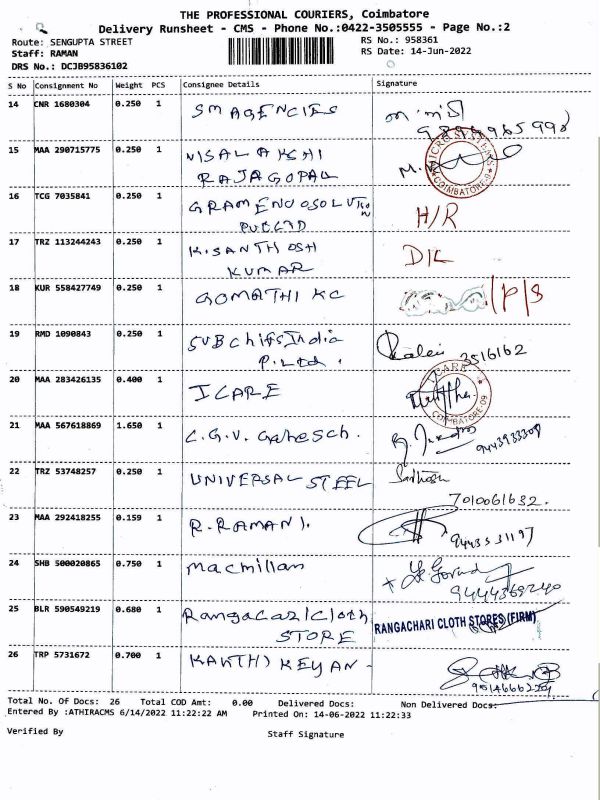 THE PROFESSIONAL COURIERS, Coimbatore
Delivery Runsheet - CMS - Phone No.:0422-3505555 - Page No.:2
Route: SENGUPTA STREET
Staff: RAMAN
DRS No.: DCJB95836102
RS No.: 958361
RS Date: 14-Jun-2022
S No Consignment No Weight PCS Consignee Details Signature
14 CNR 1680304 0.250 1 SM AGENCIES
15 MAA 290715775 0.250 1 VISALAKSHI
RAJAGOPAL
MICRO SYSTEMS
COIMBATORE-9
16 TCG 7035841 0.250 1 GRAMENOOSOLUTION
PVT LTD
H/R
17 TRZ 113244243 0.250 1 K.SANTHOSH
KUMAR
D/L
18 KUR 558427749 0.250 1 GOMATHI KC
/P/S
19 RMD 1090843 0.250 1 SUBChipsIndia
P.Ltd.
3516162
20 MAA 283426135 0.400 1 ICARE
ICARE
COIMBATORE 09
21 MAA 567618869 1.650 1 C.G.V. Ganesch.
22 TRZ 53748257 0.250 1 UNIVERSAL STEEL
7010061632.
23 MAA 292418255 0.159 1 R.RAMANI.
24 SHB 500020865 0.750 1 Macmillan
9444369240
25 BLR 590549219 0.680 1 Rangacari Cloth
STORE
RANGACHARI CLOTH STORES (FIRM)
26 TRP 5731672 0.700 1 KARTHIKEYAN-
Total No. Of Docs: 26 Total COD Amt: 0.00 Delivered Docs: Non Delivered Docs:
Entered By :ATHIRACMS 6/14/2022 11:22:22 AM Printed On: 14-06-2022 11:22:33
Verified By
Staff Signature